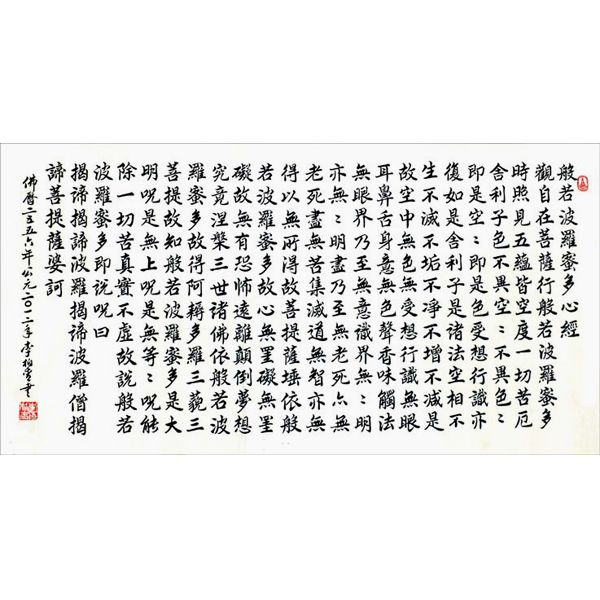 般若波羅蜜多心經
觀自在菩薩行般若波羅蜜多
時照見五蘊皆空度一切苦厄
舍利子色不異空〻不異色〻
即是空〻即是色受想行識亦
復如是舍利子是諸法空相不
生不滅不垢不淨不增不減是
故空中無色無受想行識無眼
耳鼻舌身意無色聲香味觸法
無眼界乃至無意識界無〻明
亦無〻明盡乃至無老死亦無
老死盡無苦集滅道無智亦無
得以無所得故菩提薩埵依般
若波羅蜜多故心無罣礙無罣
礙故無有恐怖遠離顛倒夢想
究竟涅槃三世諸佛依般若波
羅蜜多故得阿耨多羅三藐三
菩提故知般若波羅蜜多是大
明呪是無上呪是無等〻呪能
除一切苦真實不虛故說般若
波羅蜜多即說呪曰
揭諦揭諦波羅揭諦波羅僧揭
諦菩提薩婆訶
佛曆二五五六年公元二〇一二年李柏書